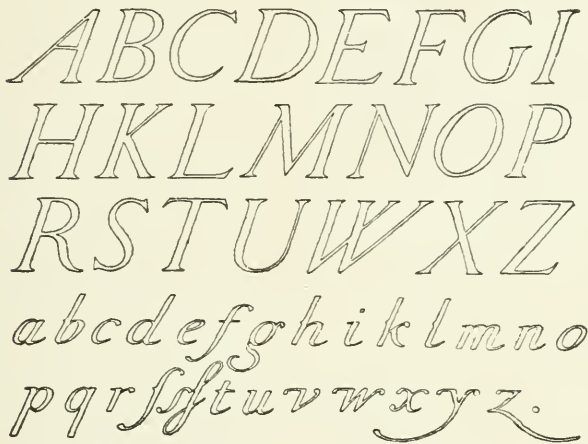 ABCDEFGI
HKLMNOP
RSTUWXZ
abcdefghiklmno
pqrſſstuvwxyz.